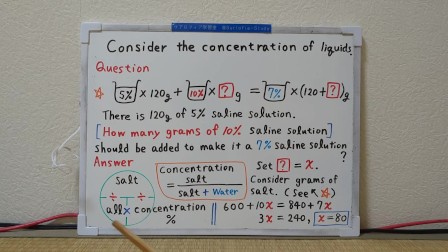 Consider the concentration of liquids.
Question
☆ 5% × 120g + 10% × ? g = 7% × (120 + ?)g
There is 120g of 5% saline solution.
[How many grams of 10% saline solution]
should be added to make it a 7% saline solution
?
Answer
Set ? = x.
Concentration
= salt / salt + Water
Consider grams of
salt. (See ↖ ☆)
salt
÷ ÷
all × concentration
%
600 + 10x = 840 + 7x
3x = 240, x = 80